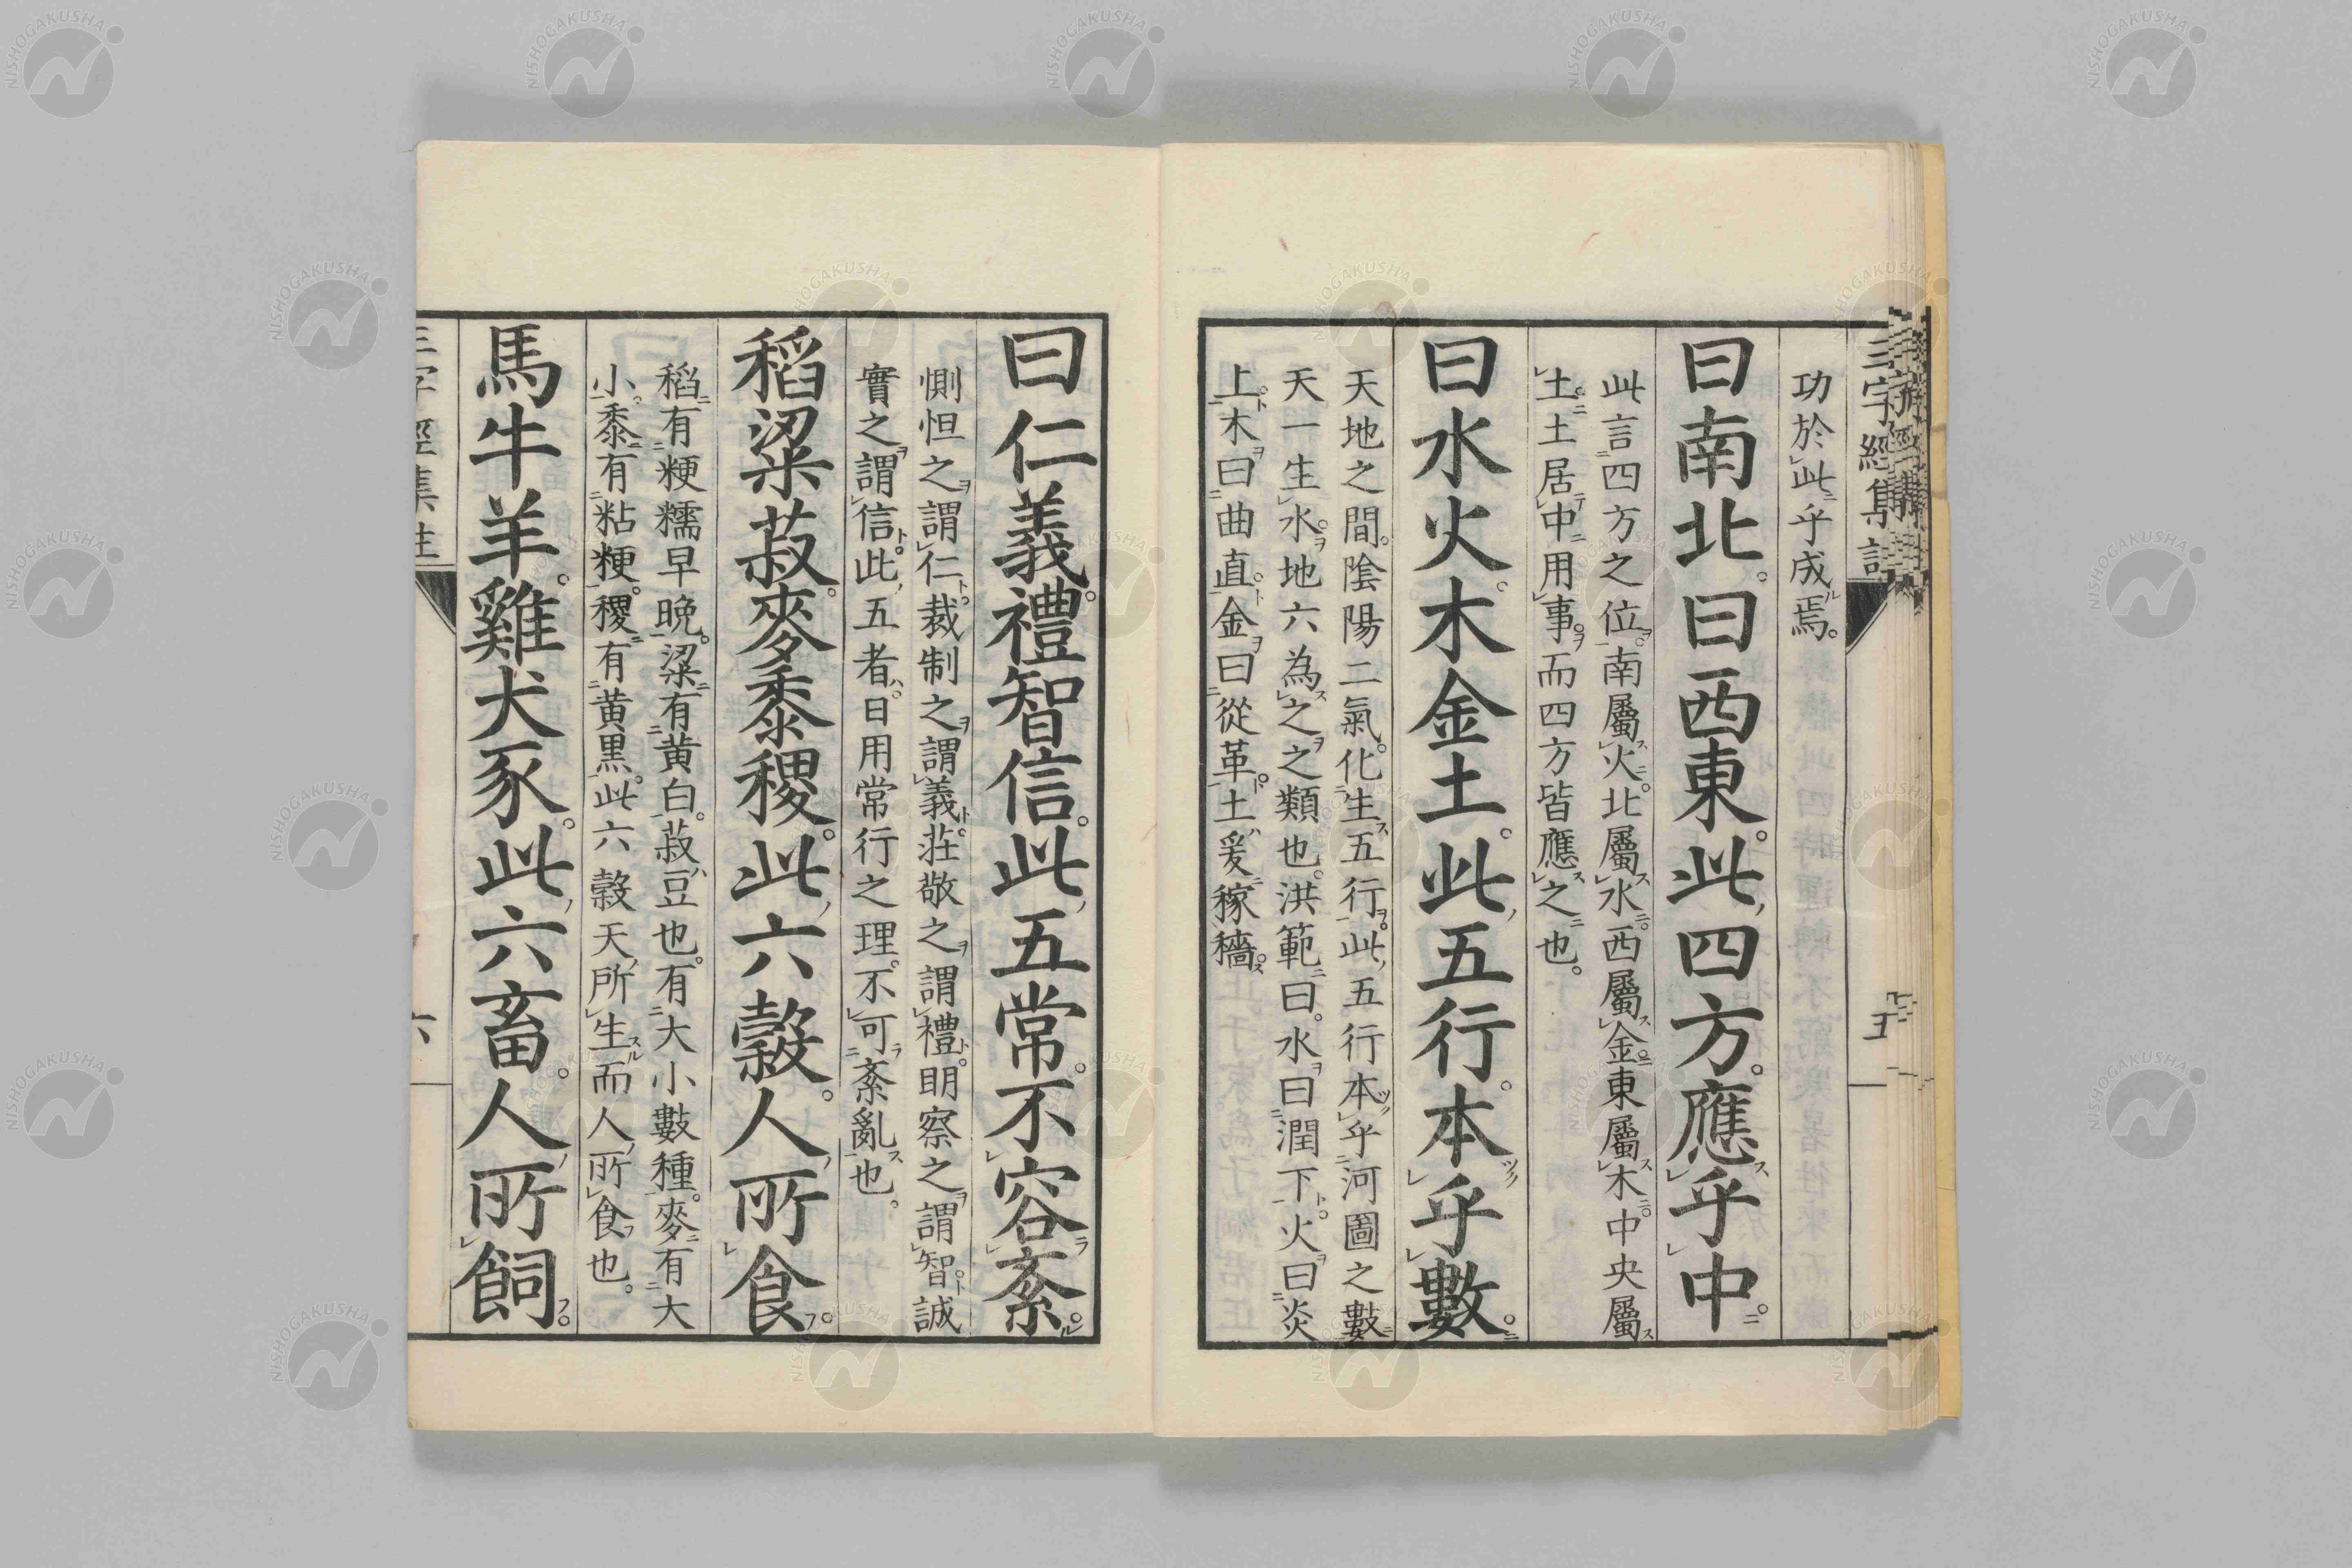 三字經集註
五
功於此乎成焉。
曰南北。曰西東。此四方。應乎中。
此言四方之位。南屬火。北屬水。西屬金。東屬木。中央屬
土。土居中用事。而四方皆應之也。
曰水火。木金土。此五行。本乎數。
天地之間。陰陽二氣。化生五行。此五行本乎河圖之數
天一生水。地六為之之類也。洪範曰。水曰潤下。火曰炎
上。木曰曲直。金曰從革。土爰稼穡。
曰仁義。禮智信。此五常。不容紊。
惻怛之謂仁。裁制之謂義。莊敬之謂禮。明察之謂智。誠
實之謂信。此五者。日用常行之理。不可紊亂也。
稻粱菽。麥黍稷。此六穀。人所食。
稻有粳糯早晚。粱有黃白。菽豆也。有大小數種。麥有大
小。黍有粘粳。稷有黃黑。此六穀天所生而人所食也。
馬牛羊。雞犬豕。此六畜。人所飼。
三字經集註
六
NISHOGAKUSHA